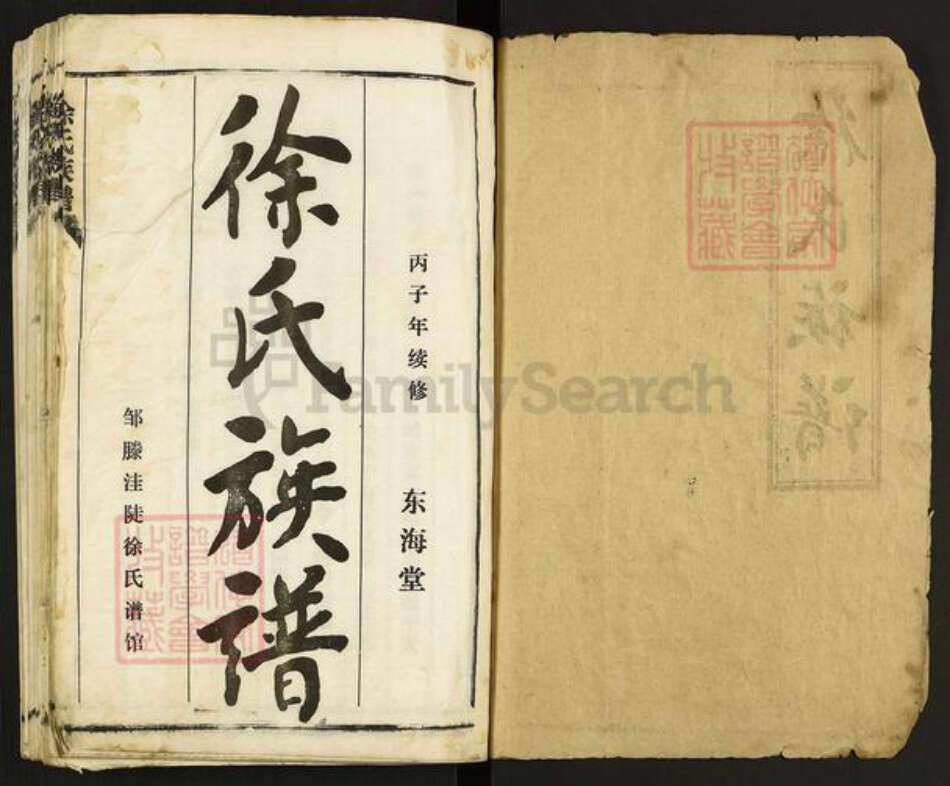 丙子年续修
东海堂
徐氏族谱
邹滕洼陡徐氏谱馆
徐氏族谱
FamilySearch